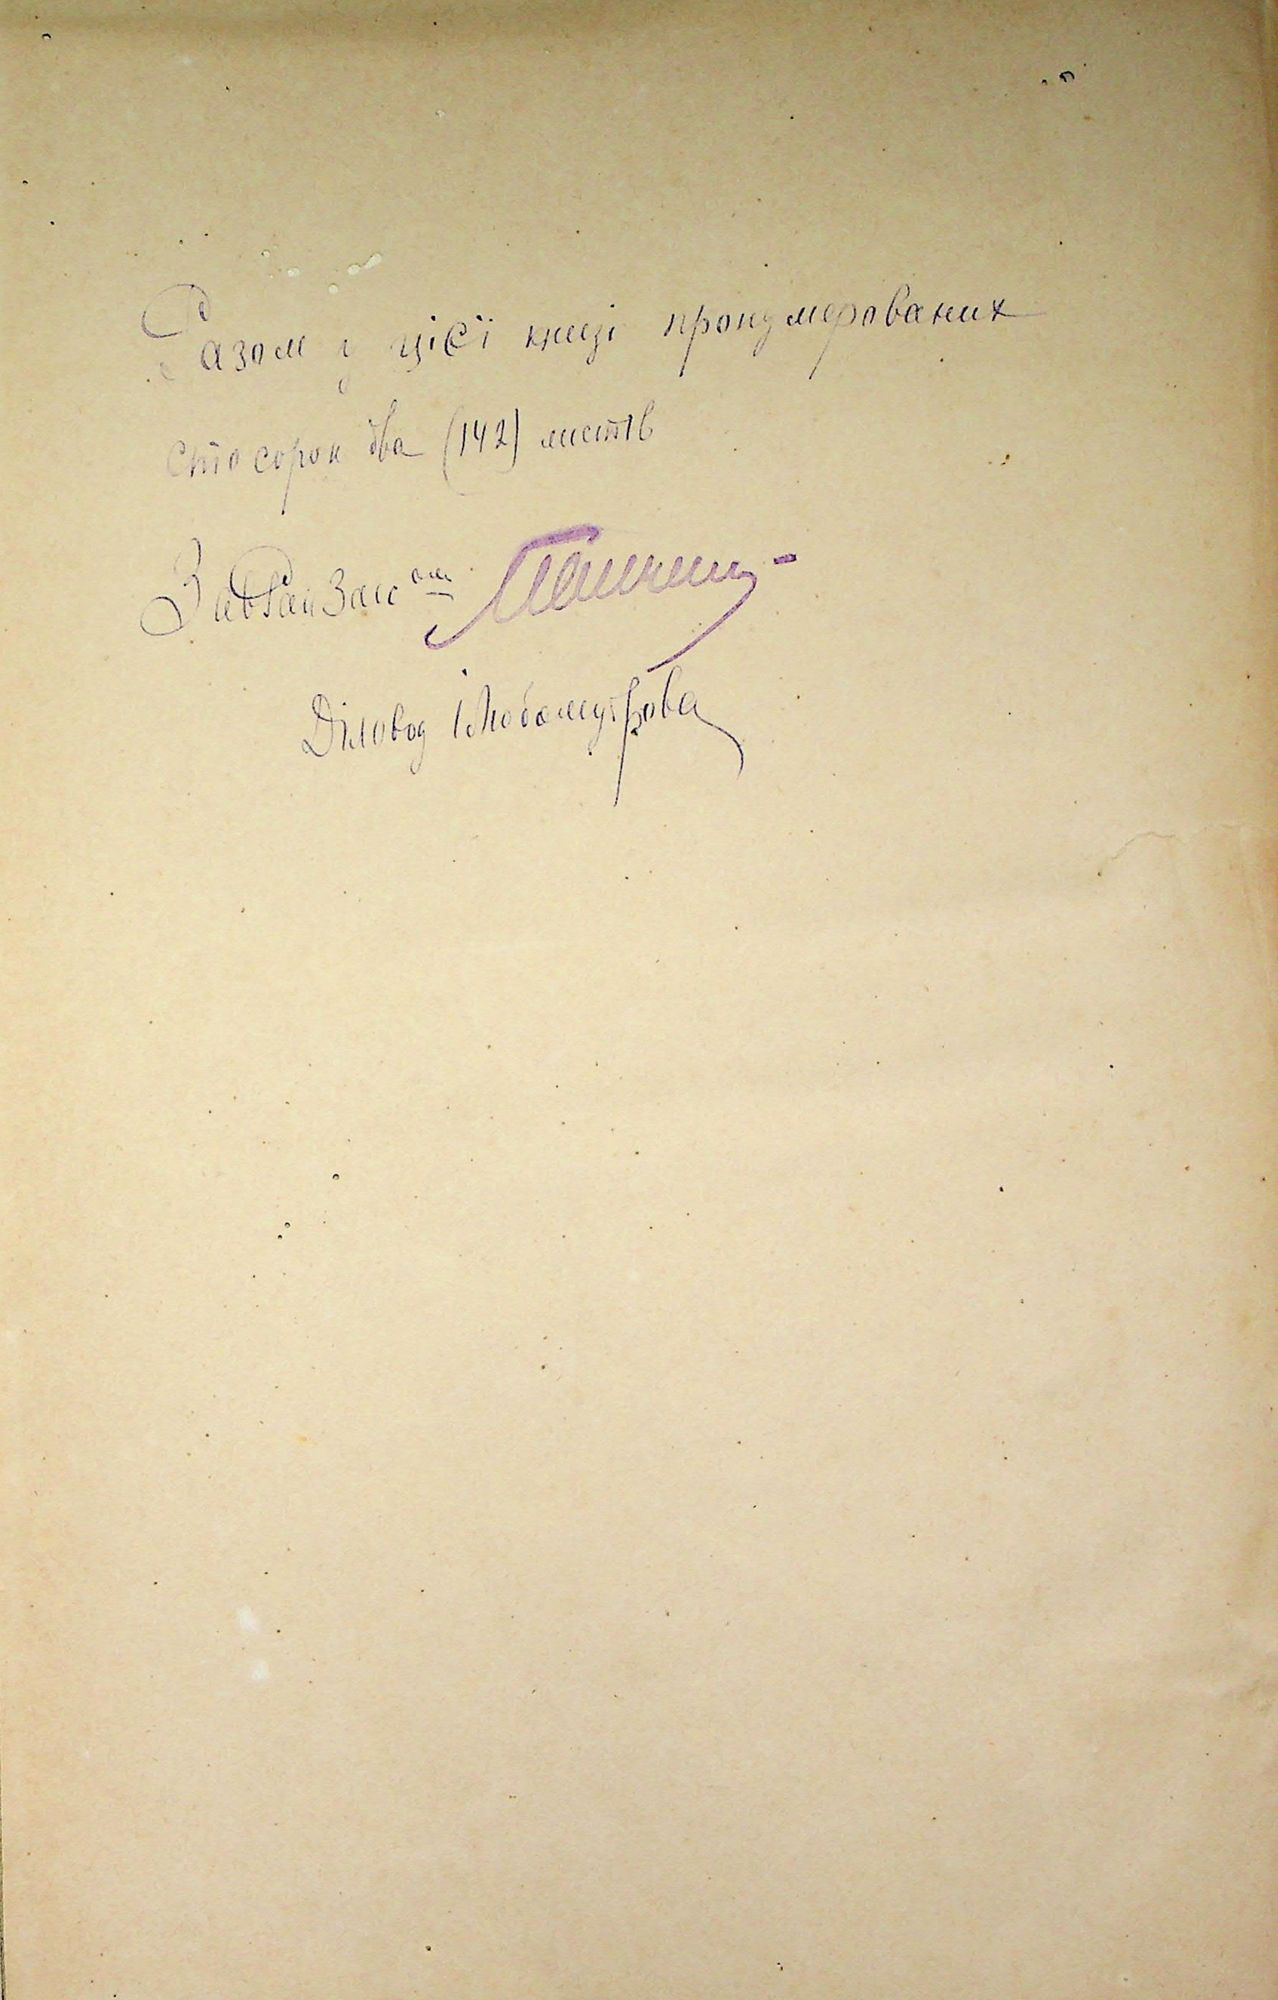 Разом у цієї книзі пронумерованих
сто сорок два (142) листів
ЗавРайЗагс ом
Діловод Любомудрова